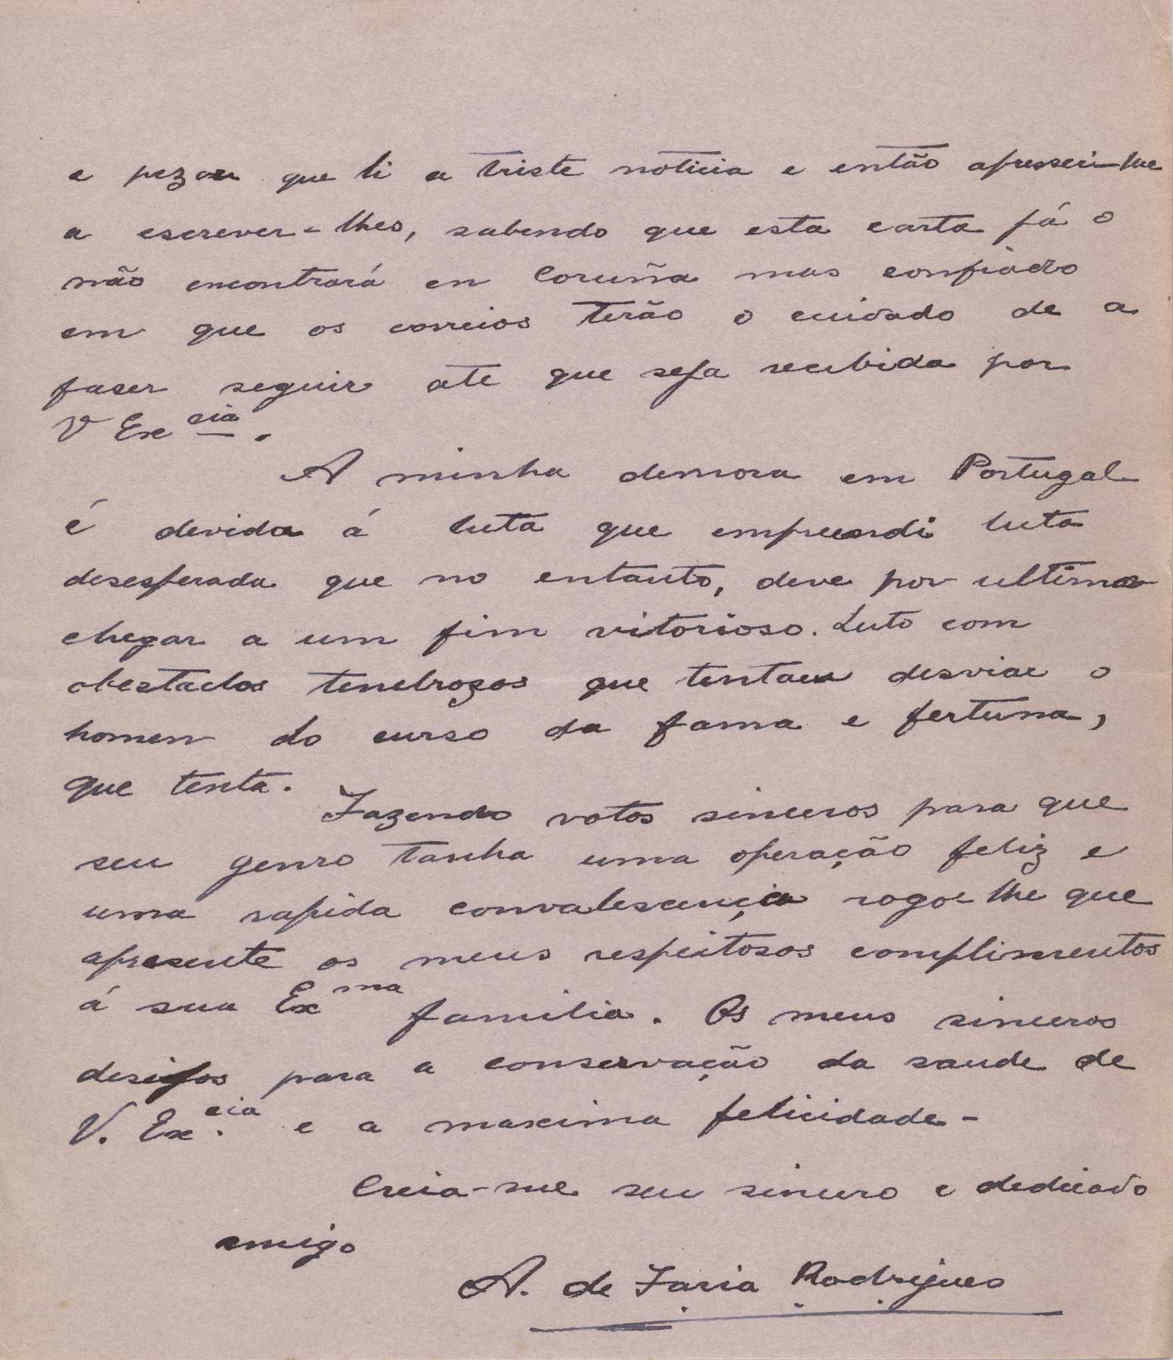 e pezou que li a triste noticia e então apressei-me
a escrever-lhes, sabendo que esta carta já o
não encontrará en Coruña mas confiado
em que os correios terão o cuidado de a
faser seguir ate que seja recibida por
V Ex cia.
A minha demora em Portugal
é devida á luta que empreendi luta
desesperada que no entanto, deve por ultimo
chegar a um fim vitorioso. Luto com
obestaclos tenebrozos que tentam desviar o
homem do curso da fama e fertuna,
que tenta.
Fazendo votos sinceros para que
seu genro tanha uma operação feliz e
uma rapida convalescençia rogo lhe que
apresente os meus respeitosos complimentos
á sua Ex ma familia. Os meus sinceros
desijos para a conservação da saude de
V. Ex. cia e a maxima felicidade -
Creia-me seu sincero e dedicado
amigo
A. de Faria Rodrigues